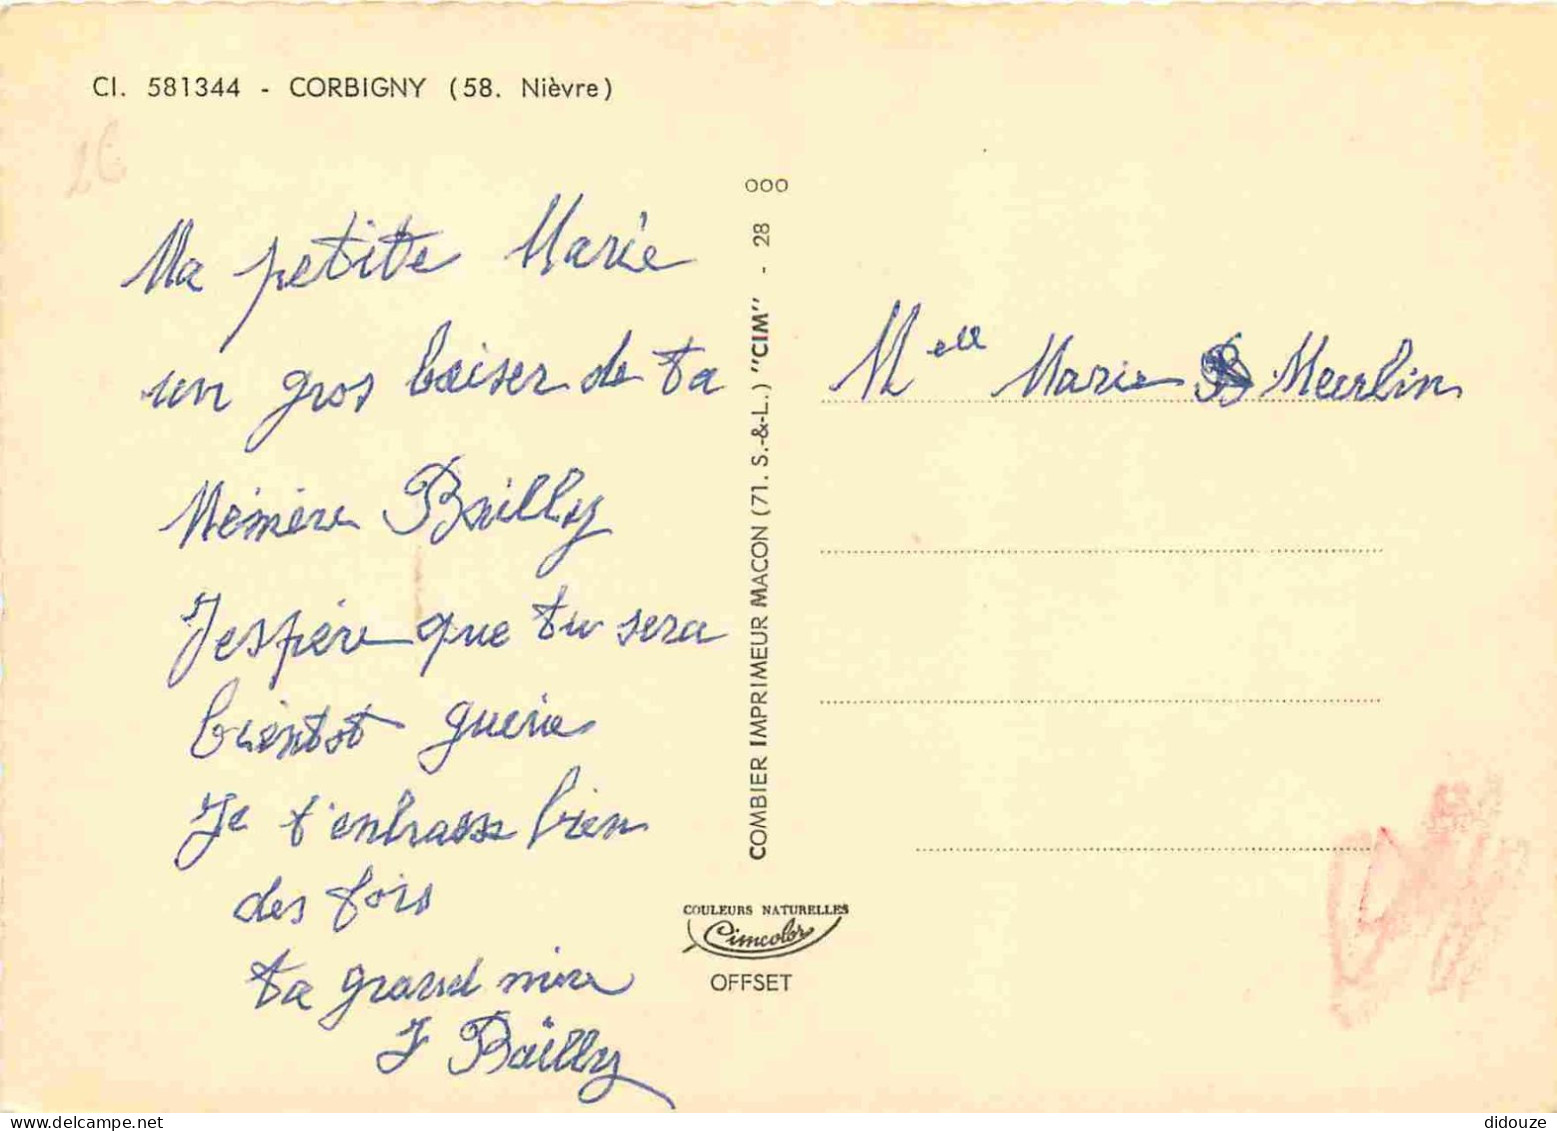 CI. 581344 - CORBIGNY (58. Nièvre)
Ma petite Marie
un gros baiser de ta
Mémère Bailly
J'espère que tu sera
bientot guerie
Je t'enbrasse bien
des fois
ta grand mère
J Bailly
COMBIER IMPRIMEUR MACON (71. S.-&-L.) "CIM" - 28 000
COULEURS NATURELLES
Cimcolor
OFFSET
Mell Marie Meerlin
didouze